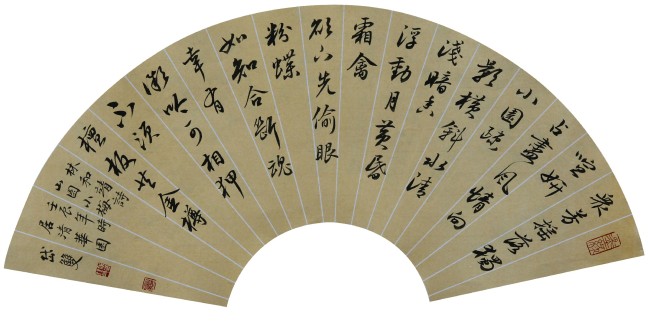 眾芳搖落獨
暄妍
占盡風情向
小園疏
影橫斜水清
淺暗香
浮動月黃昏
霜禽
欲下先偷眼
粉蝶
如知合斷魂
幸有
微吟可相狎
不須
檀板共金樽
林和靖詩
山園小梅
壬辰年時
居清華園